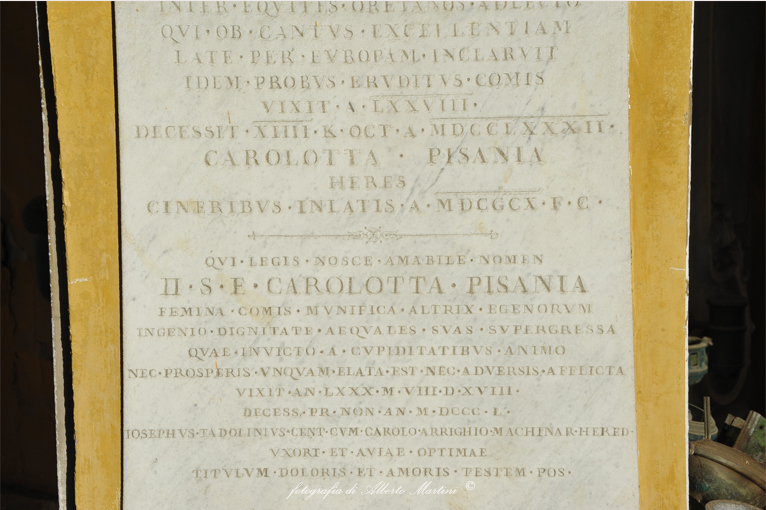 INTER·EQVITES·CRETANOS·ADLECTO
QVI·OB·CANTVS·EXCELLENTIAM
LATE·PER·EVROPAM·INCLARVIT
IDEM·PROBVS·ERVDITVS·COMIS
VIXIT·A·LXXVIII·
DECESSIT·XIIII·K·OCT·A·MDCCLXXXII·
CAROLOTTA · PISANIA
HERES
CINERIBVS·INLATIS·A·MDCCCX·F·C·
QVI·LEGIS·NOSCE·AMABILE·NOMEN
H·S·E·CAROLOTTA·PISANIA
FEMINA·COMIS·MVNIFICA·ALTRIX·EGENORVM
INGENIO·DIGNITATE·AEQVALES·SVAS·SVPERGRESSA
QVAE·INVICTO·A·CVPIDITATIBVS·ANIMO
NEC·PROSPERIS·VNQVAM·ELATA·EST·NEC·ADVERSIS·AFFLICTA
VIXIT·AN·LXXX·M·VIII·D·XVIII·
DECESS·PR·NON·AN·M·DCCC·L·
IOSEPHVS·TADOLINIVS·CENT·CVM·CAROLO·ARRIGHIO·MACHINAR·HERED·
VXORI·ET·AVIAE·OPTIMAE
TITVLVM·DOLORIS·ET·AMORIS·TESTEM·POS·
fotografia di Alberto Martini ©